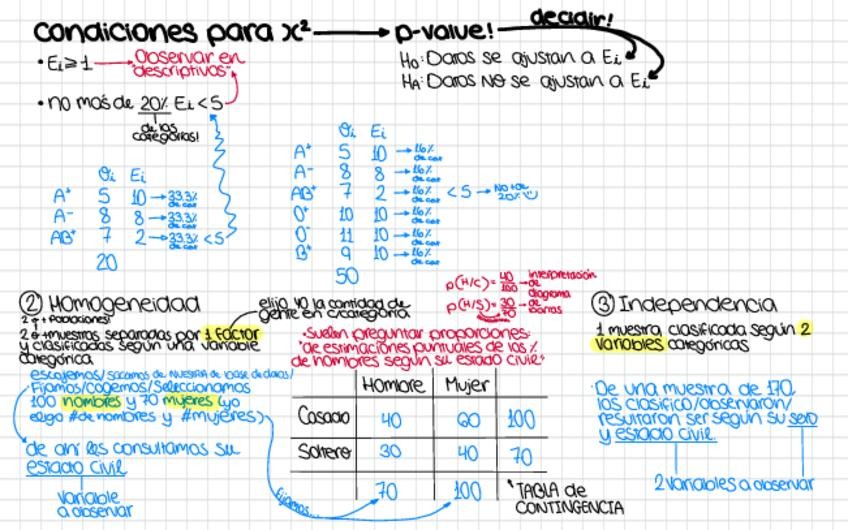 condiciones para x² → p-value! decidir!
• Ei ≥ 1 → Observar en "descriptivos"
• no más de 20% Ei < 5
de las categorías!
H0: Datos se ajustan a Ei
HA: Datos NO se ajustan a Ei
Oi Ei
A+ 5 10 → 33.3% de cat
A- 8 8 → 33.3% de cat
AB+ 7 2 → 33.3% de cat < 5
20
Oi Ei
A+ 5 10 → 16% de cat
A- 8 8 → 16% de cat
AB+ 7 2 → 16% de cat < 5 → No + de 20%
O+ 10 10 → 16% de cat
O- 11 10 → 16% de cat
B+ 9 10 → 16% de cat
50
② Homogeneidad
2 ó + Poblaciones!
2 ó + muestras separadas por 1 factor
y clasificadas según una variable
categórica
elijo yo la cantidad de
gente en c/categoría
escojemos/sacamos de nuestra de base de datos/
Fijamos/cogemos/seleccionamos
100 hombres y 70 mujeres (yo
elijo # de hombres y #mujeres)
de ahí les consultamos su
estado civil
variable
a observar
Fijamos...
P(H/C) = 40/100 → de
P(H/S) = 30/70 → de
interpretación
diagrama
barras
• suelen preguntar proporciones:
"de estimaciones puntuales de los %
de hombres según su estado civil"
Hombre Mujer
Casado 40 60 100
Soltero 30 40 70
70 100
TABLA de
CONTINGENCIA
③ Independencia
1 muestra clasificada según 2
variables categóricas
• De una muestra de 170,
los clasifico/observaron/
resultaron ser según su sexo
y estado civil.
2 variables a observar